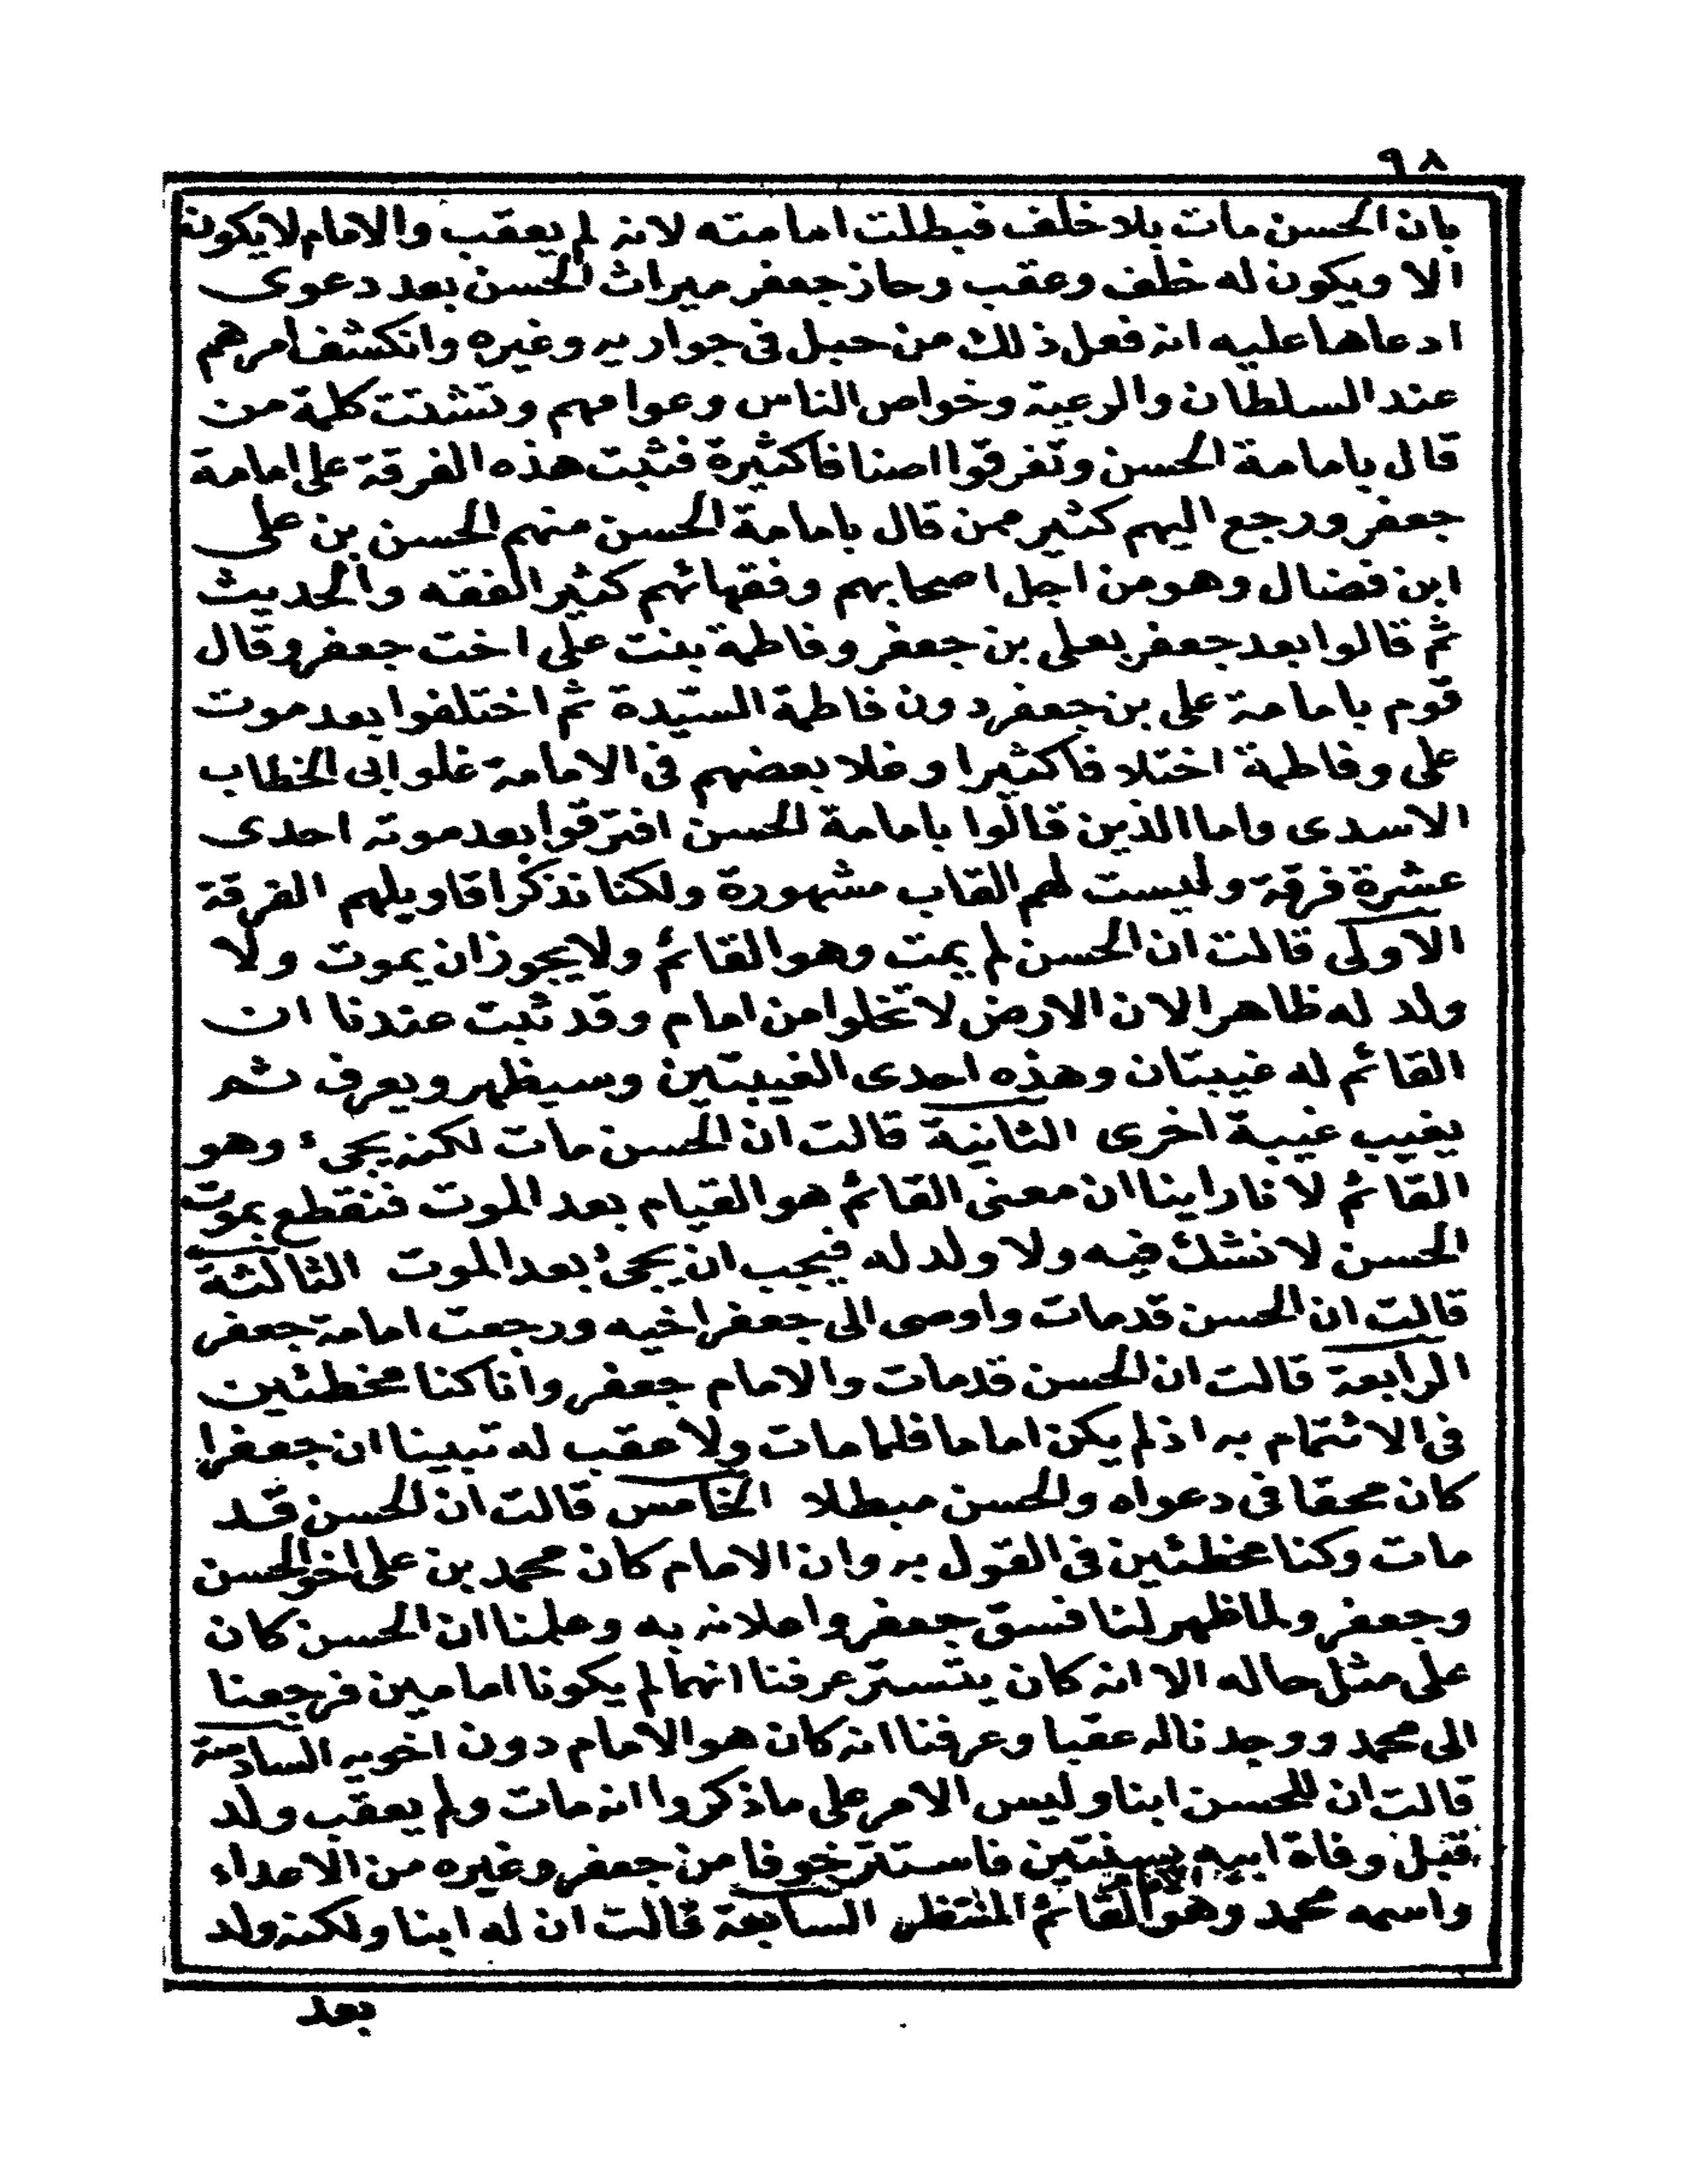 ٩٨
بان الحسن مات بلا خلف فبطلت امامته لانه لم يعقب والامام لا يكون
الا ويكون له خلف وعقب وحاز جعفر ميراث الحسن بعد دعوى
ادعاها عليه انه فعل ذلك من حبل في جواريه وغيره وانكشف امرهم
عند السلطان والرعية وخواص الناس وعوامهم وتشتت كلمة من
قال بامامة الحسن وتفرقوا اصنافا كثيرة فثبت هذه الفرقة على امامة
جعفر ورجع اليهم كثير ممن قال بامامة الحسن منهم الحسن بن على
ابن فضال وهو من اجل اصحابهم وفقهائهم كثير الفقه والحديث
ثم قالوا بعد جعفر بعلى بن جعفر وفاطمة بنت على اخت جعفر وقال
قوم بامامة على بن جعفر دون فاطمة السيّدة ثم اختلفوا بعد موت
على وفاطمة اختلافا كثيرا وغلا بعضهم في الامامة غلو ابى الخطاب
الاسدى واما الذين قالوا بامامة الحسن افترقوا بعد موته احدى
عشرة فرقة وليست لهم القاب مشهورة ولكنا نذكر اقاويلهم الفرقة
الاولى قالت ان الحسن لم يمت وهو القائم ولا يجوز ان يموت ولا
ولد له ظاهرا لان الارض لا تخلوا من امام وقد ثبت عندنا ان
القائم له غيبتان وهذه احدى الغيبتين وسيظهر ويعرف ثم
يغيب غيبة اخرى الثانية قالت ان الحسن مات لكنه يجىء وهو
القائم لانا راينا ان معنى القائم هو القيام بعد الموت فنقطع بموت
الحسن لا نشك فيه ولا ولد له فيجب ان يجىء بعد الموت الثالثة
قالت ان الحسن قد مات واوصى الى جعفر اخيه ورجعت امامة جعفر
الرابعة قالت ان الحسن قد مات والامام جعفر وانا كنا مخطئين
فى الائتمام به اذ لم يكن اماما فلما مات ولا عقب له تبينا ان جعفرا
كان محقا فى دعواه والحسن مبطلا الخامس قالت ان الحسن قد
مات وكنا مخطئين فى القول به وان الامام كان محمد بن على اخو الحسن
وجعفر ولما ظهر لنا فسق جعفر واعلانه به وعلمنا ان الحسن كان
على مثل حاله الا انه كان يتستر عرفنا انهما لم يكونا امامين فرجعنا
الى محمد ووجدنا له عقبا وعرفنا انه كان هو الامام دون اخويه السادسة
قالت ان للحسن ابنا وليس الامر على ما ذكروا انه مات ولم يعقب ولد
قبل وفاة ابيه بسنتين فاستتر خوفا من جعفر وغيره من الاعداء
واسمه محمد وهو الامام القائم المنتظر السابعة قالت ان له ابنا ولكنه ولد
بعد